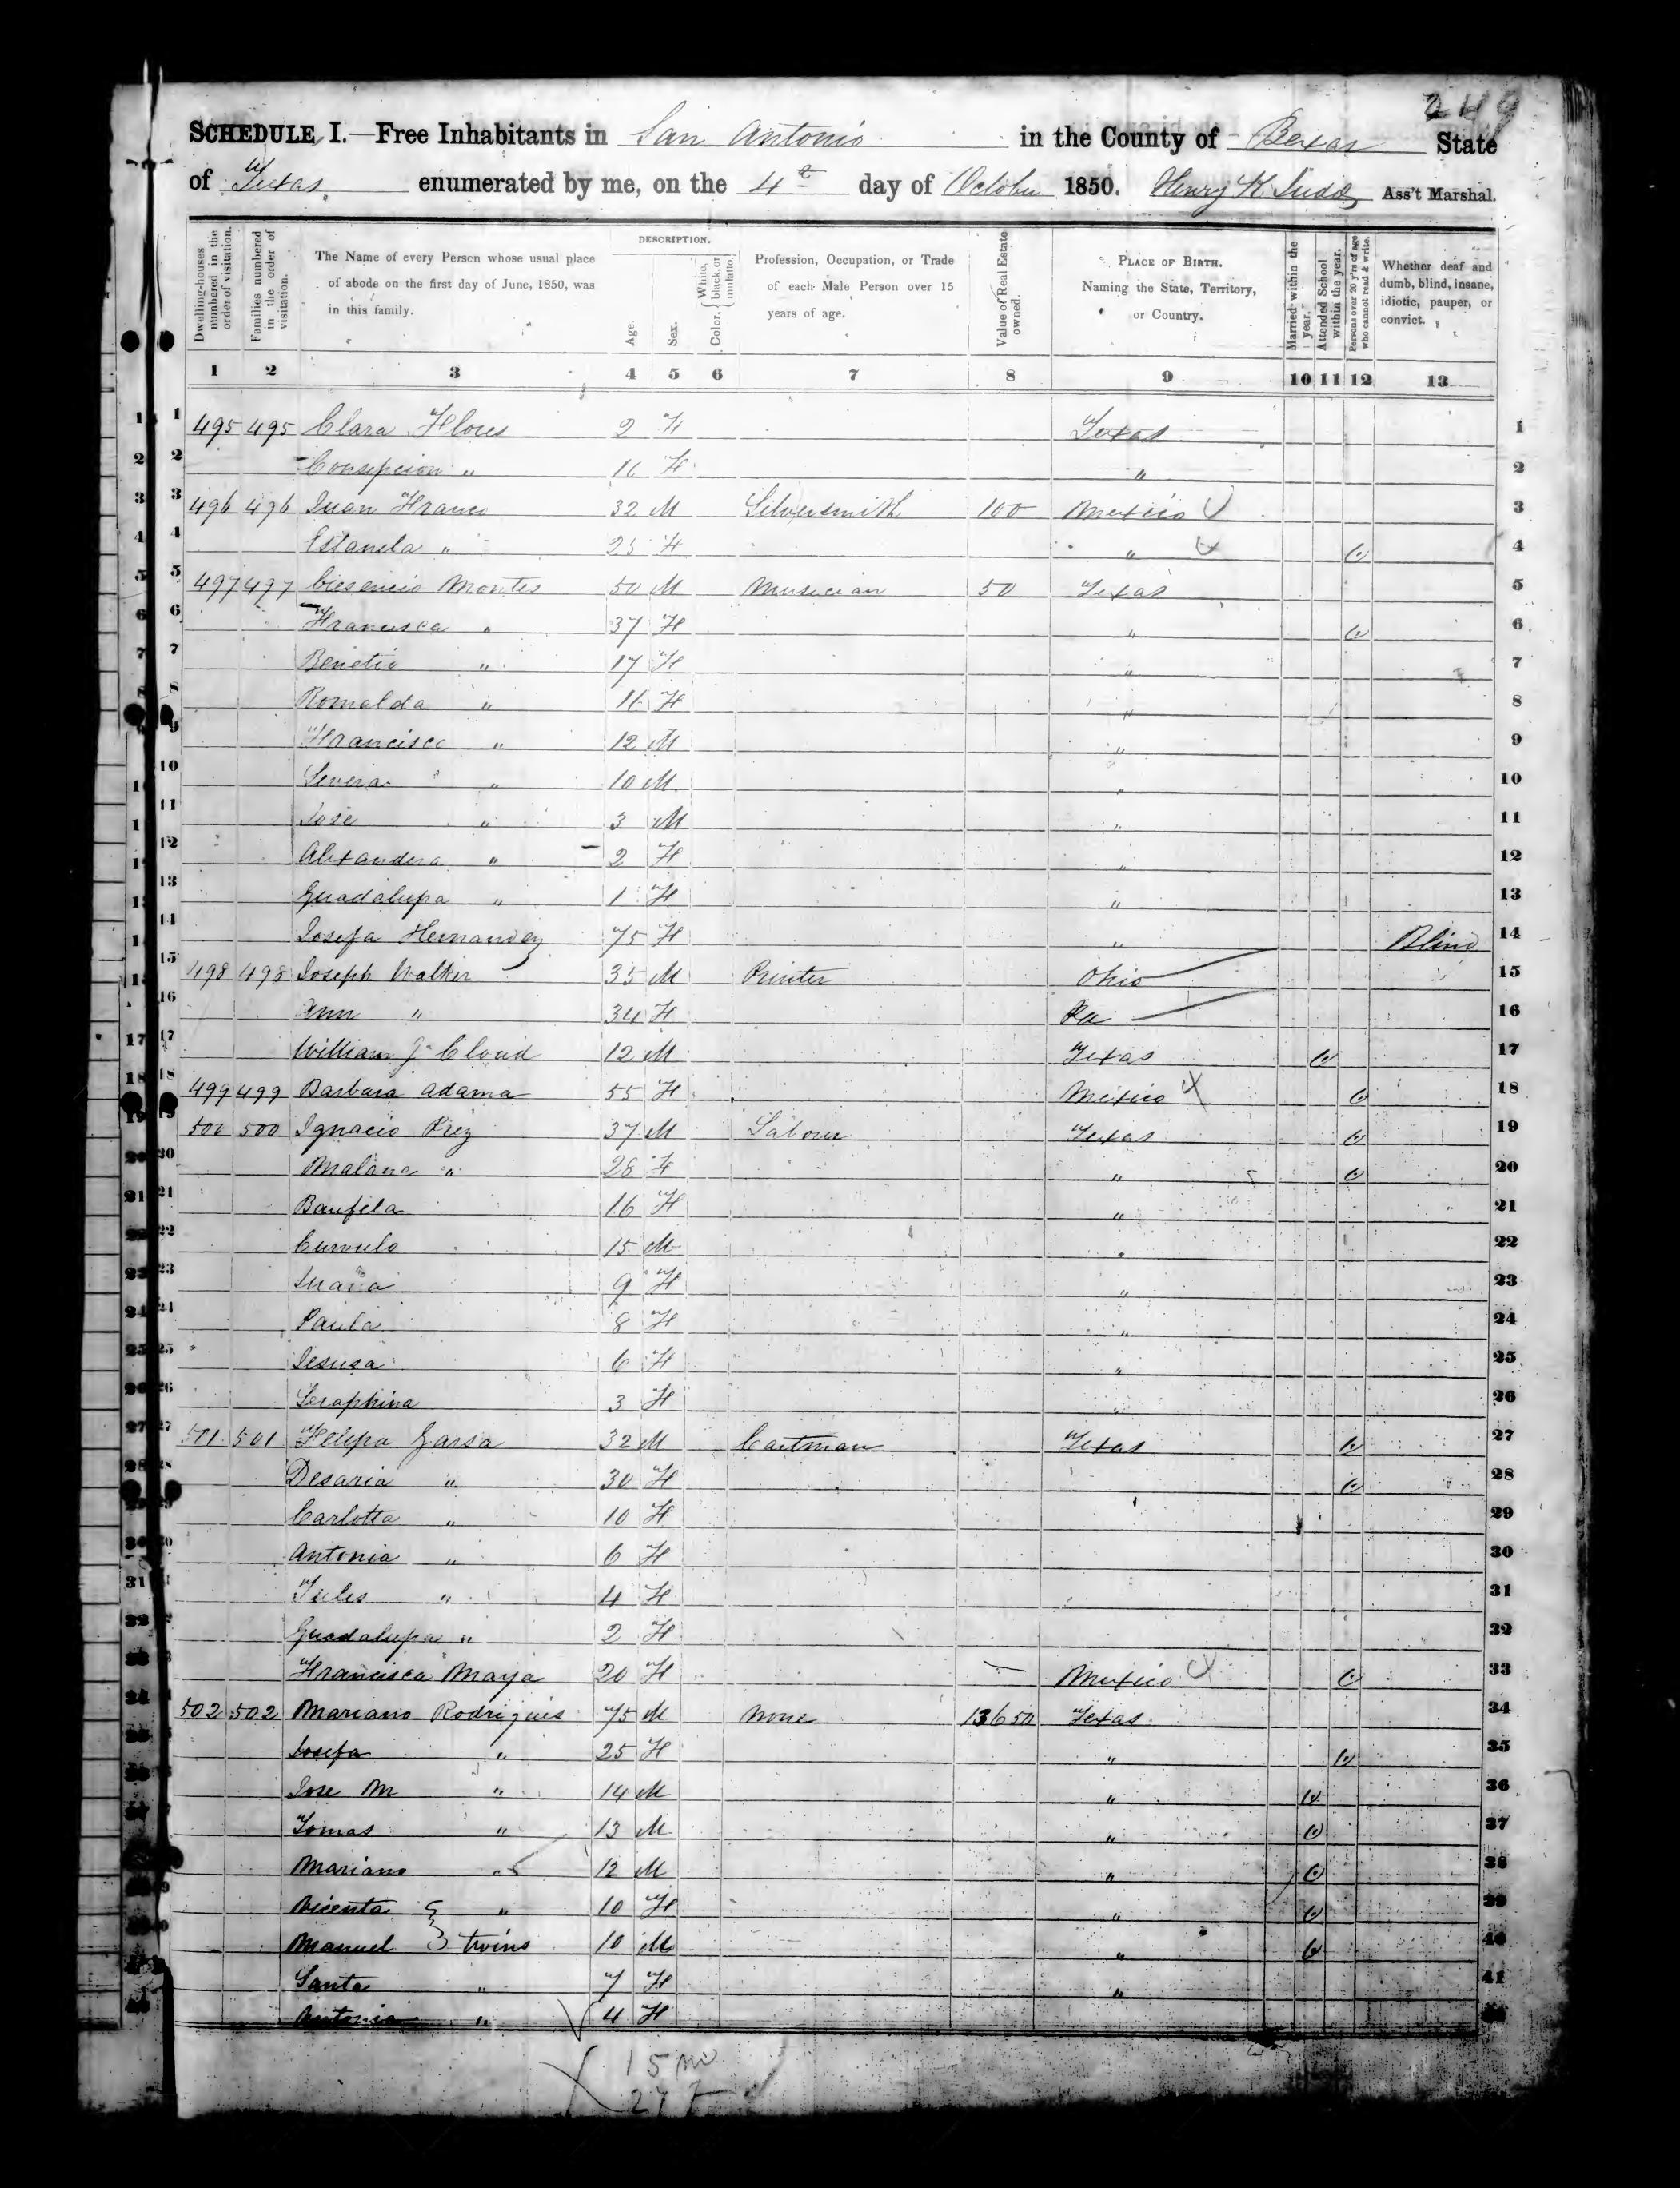 249
SCHEDULE I.—Free Inhabitants in San Antonio in the County of Bexar State
of Texas enumerated by me, on the 4th day of October 1850. Henry K Judd Ass't Marshal.
Dwelling-houses numbered in the order of visitation.
Families numbered in the order of visitation.
The Name of every Person whose usual place of abode on the first day of June, 1850, was in this family.
DESCRIPTION.
Age.
Sex.
Color, { White, black, or mulatto.
Profession, Occupation, or Trade of each Male Person over 15 years of age.
Value of Real Estate owned.
PLACE OF BIRTH. Naming the State, Territory, or Country.
Married within the year.
Attended School within the year.
Persons over 20 y'rs of age who cannot read & write.
Whether deaf and dumb, blind, insane, idiotic, pauper, or convict.
1 2 3 4 5 6 7 8 9 10 11 12 13
1 495 495 Clara Flores 2 F Texas 1
2 Consepcion " F " 2
3 496 496 Juan Franco 32 M Silversmith 100 Mexico 3
4 Estanela " 25 F " 4
5 497 497 Cresencio Montes 50 M Musician 50 Texas 5
6 Francisca " 37 F " 6
7 Benetio " 17 F " 7
8 Romalda " 16 F " 8
9 Francisco " 12 M " 9
10 Severa " 10 M " 10
11 Jose " 3 M " 11
12 Alexandera " 2 F " 12
13 Guadalupa " 1 F " 13
14 Josefa Hernandez 75 F " Blind 14
15 498 498 Joseph Walker 35 M Printer Ohio 15
16 Ann " 34 F Pa 16
17 William J Cloud 12 M Texas 17
18 499 499 Barbara Adama 55 F Mexico 18
19 500 500 Ignacio Prez 37 M Laborer Texas 19
20 Malana " 28 F " 20
21 Banfela 16 F " 21
22 Curvulo 15 M " 22
23 Juana 9 F " 23
24 Paula 8 F " 24
25 Jesusa 6 F " 25
26 Seraphina 3 F " 26
27 501 501 Felepa Garsa 32 M Cartman Texas 27
28 Desaria " 30 F 28
29 Carlotta " 10 F 29
30 Antonia " 6 F 30
31 Jules " 4 F 31
32 Guadalupa " 2 F 32
33 Francisca Maya 20 F Mexico 33
34 502 502 Mariano Rodrigues 75 M None 13650 Texas 34
35 Josefa " 25 F " 35
36 Jose M " 14 M " 36
37 Tomas " 13 M " 37
38 Mariano " 12 M " 38
39 Vicenta " 10 F " 39
40 Manuel } twins 10 M " 40
41 Santa " 7 F " 41
Antonia " 4 F
15 m
27 F